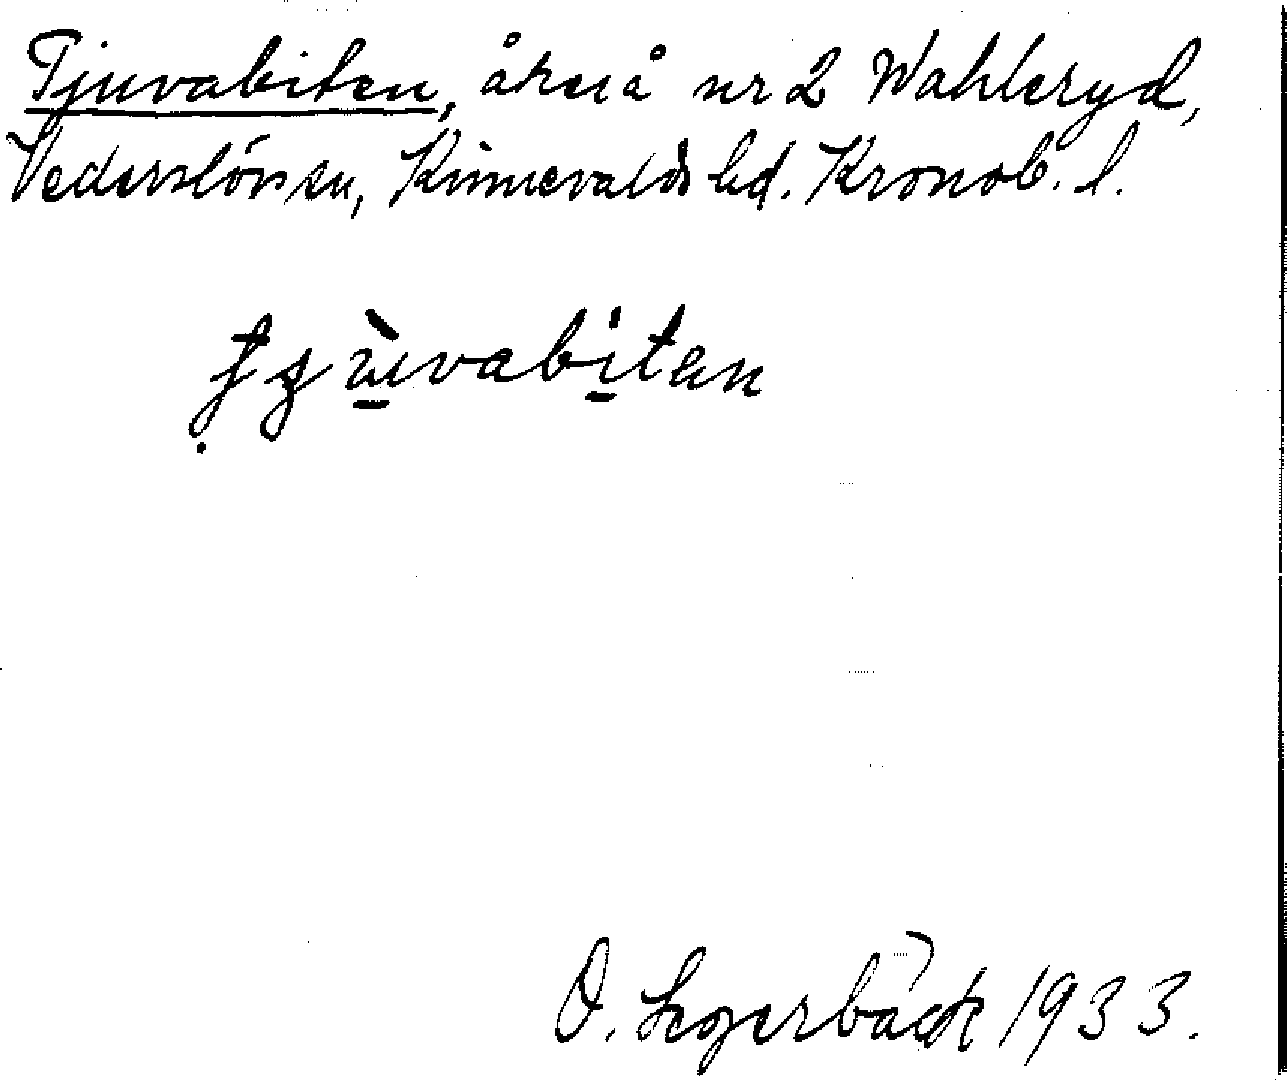 Tjuvabiten, åker å nr 2 Wahleryd,
Vederslövs sn, Kinnevalds hd. Kronob. l.
tjùvabiten
O. Segerbäck 1933.